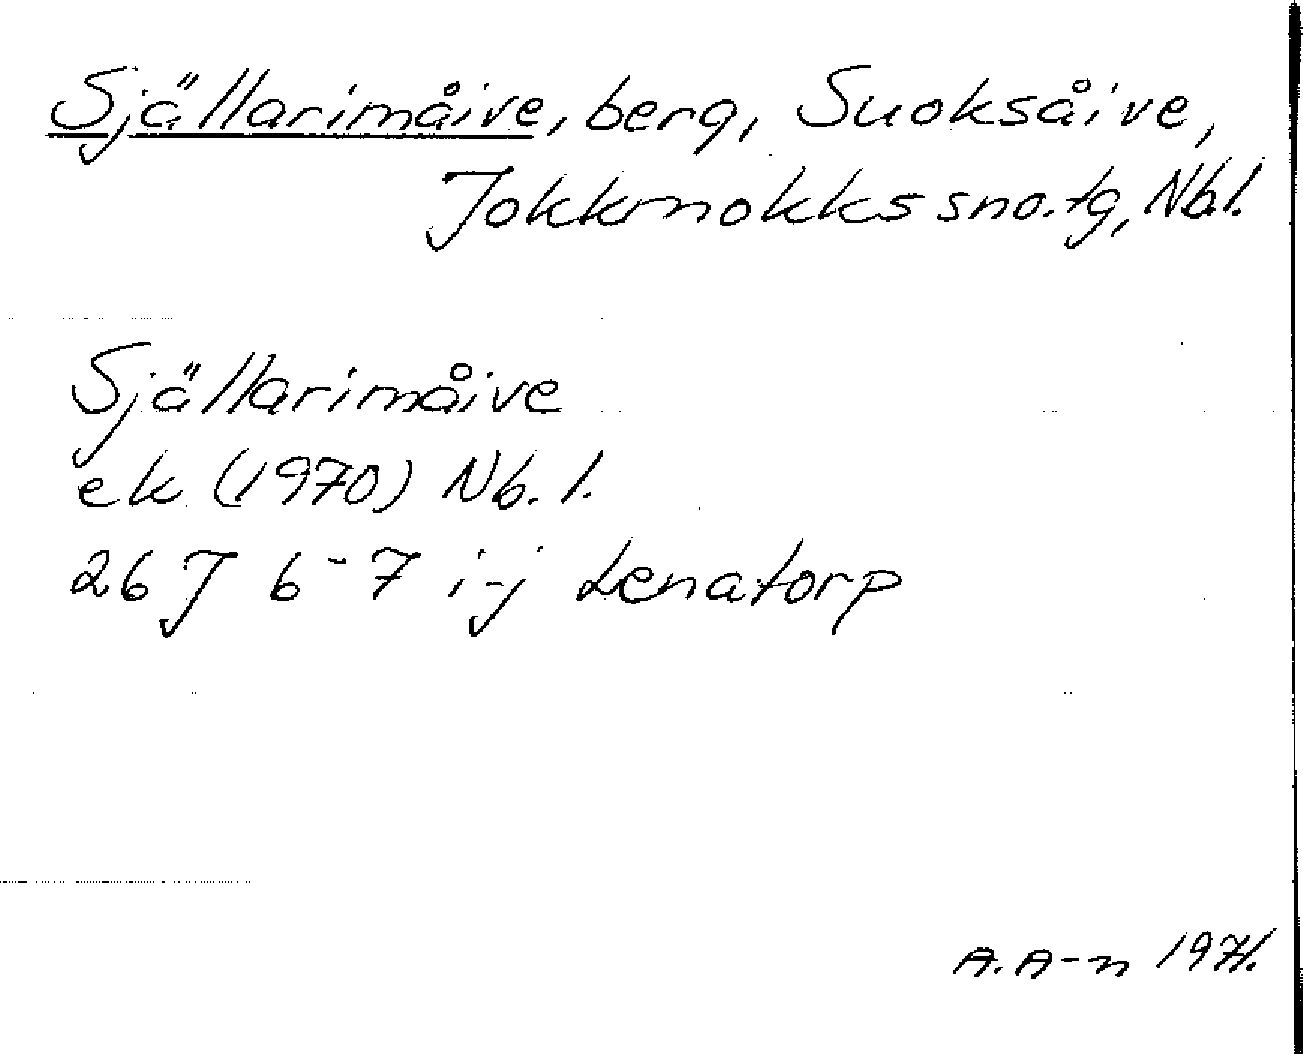 Själlarimåive, berg, Suoksåive,
Jokkmokks sno. tg, Nb.l.
Själlarimåive
ek (1970) Nb. l.
26 J 6-7 i-j Lenatorp
A. A-n 1971.